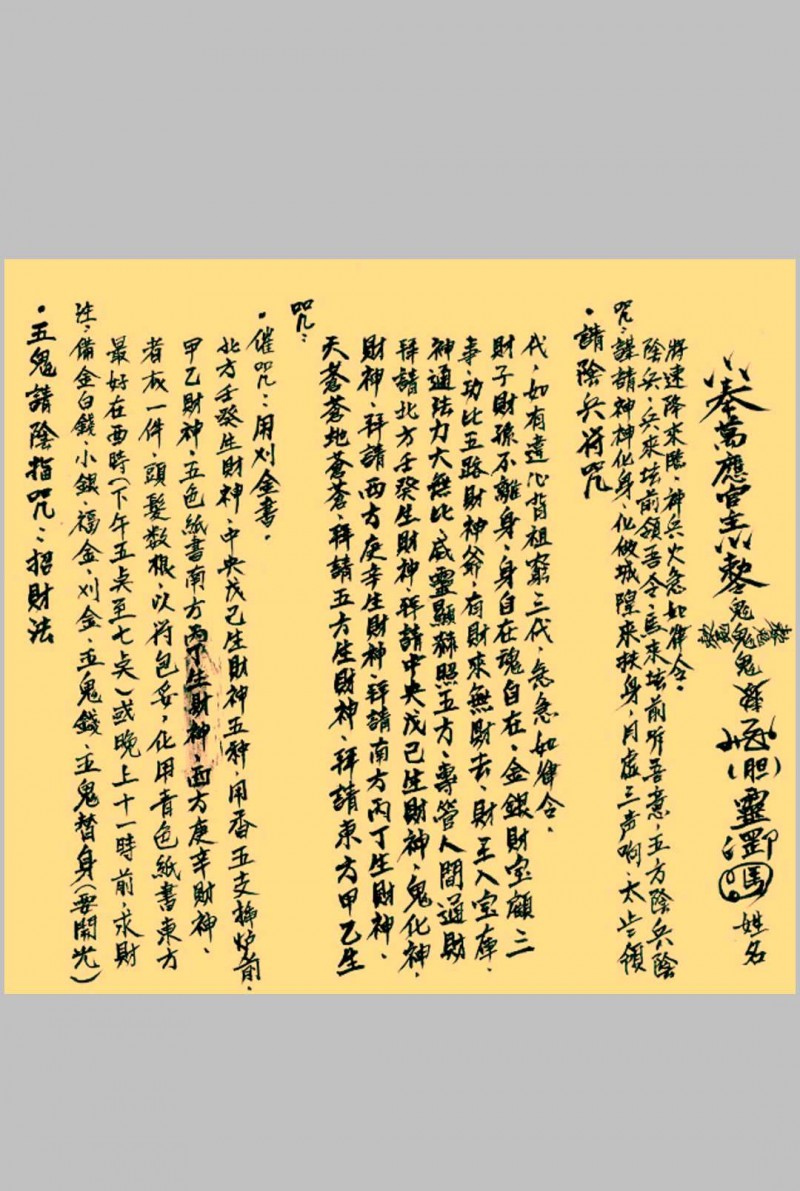 ·五鬼請陰指咒:招財法
注:備金白錢、小銀、福金、刈金、五鬼錢、五鬼替身(要開光)
最好在酉時(下午五点至七点)或晚上十一時前,求財
者衣一件,頭髮数根,以符包妥,化用青色紙書東方
甲乙財神、五色紙書南方丙丁生財神、西方庚辛財神、
北方壬癸生財神、中央戊己生財神五种,用香五支插炉前。
·催咒:用刈金書。
咒:
天蒼蒼地蒼蒼,拜請五方生財神,拜請東方甲乙生
財神,拜請西方庚辛生財神,拜請南方丙丁生財神,
拜請北方壬癸生財神,拜請中央戊己生財神,鬼化神,
神通法力大無比,威靈顯赫照五方,專管人間通財
事,功比五路財神爺,有財來無財去,財王入宝庫,
財子財孫不離身,身自在魂自在,金銀財宝顧三
代,如有違心背祖窮三代,急急如律令。
·請陰兵符咒
咒:謹請神神化身,化做城隍來扶身,月虛三声响,太歲領
陰兵,兵來坛前領吾令,馬來坛前听吾意,五方陰兵陰
將速降來臨,神兵火急如律令。
奉萬應官 鬼鬼鬼 (胆)靈 馮 姓名